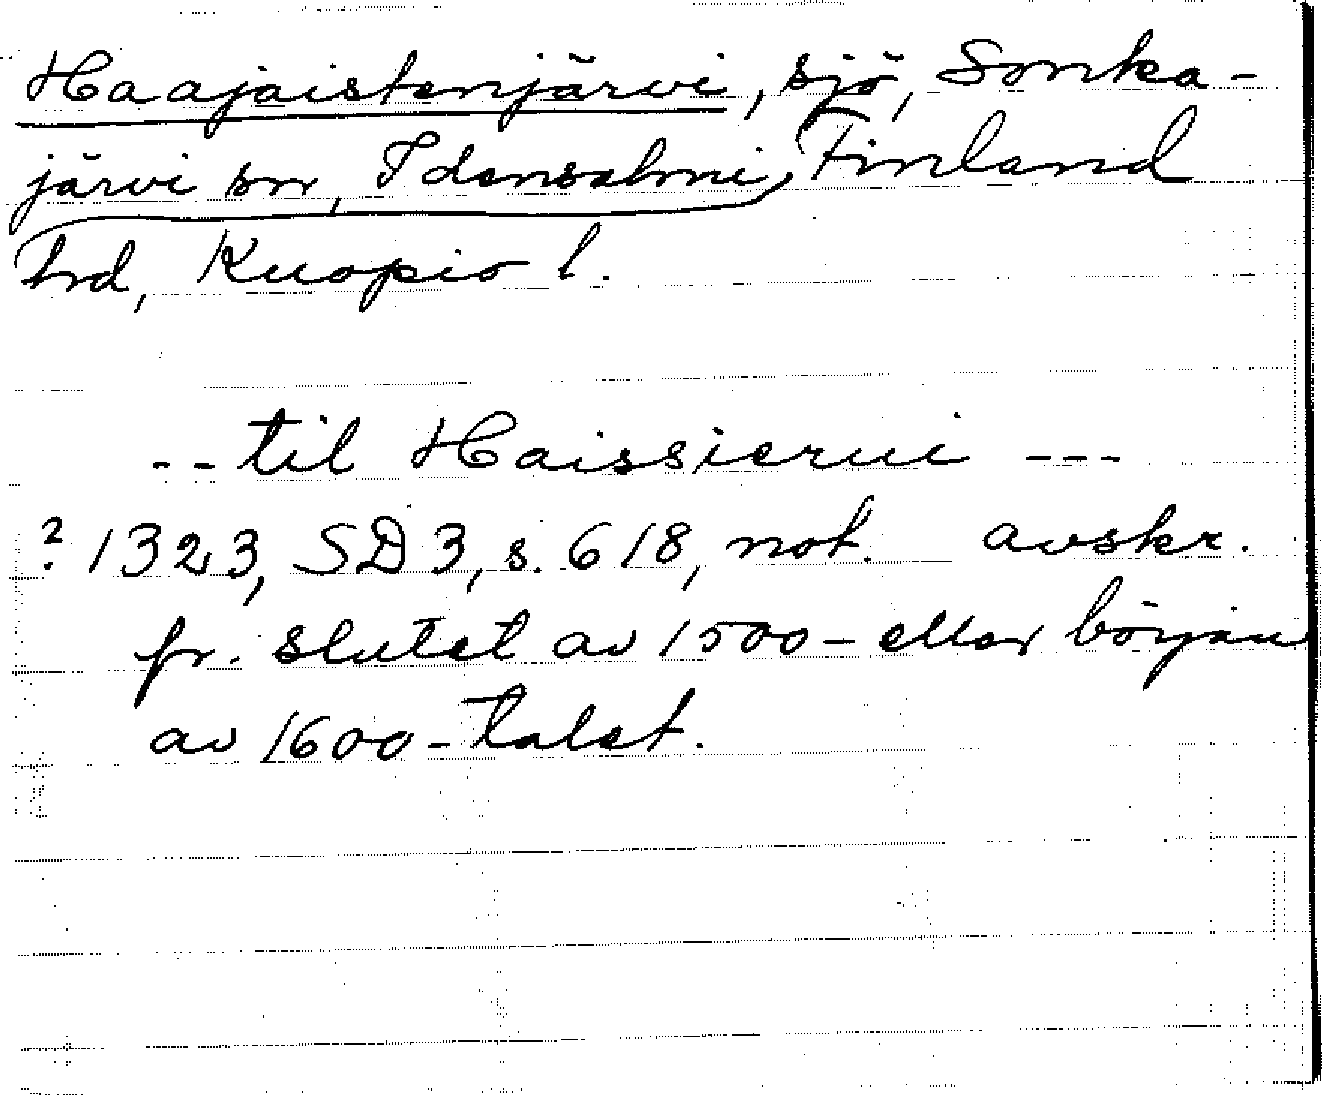 Haajaistenjärvi, sjö, Sonka-
järvi sn, Idensalmi Finland
hrd, Kuopio l.
-- til Haissierui ---
? 1323, SD 3, s. 618, not. avskr.
fr. slutet av 1500- eller början
av 1600-talet.